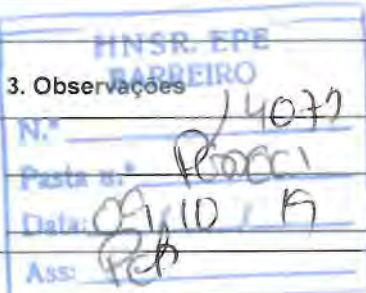 HNSR. EPE
BARREIRO
3. Observações
N.º 14071
Pasta n.º
Data: 09/10/19
Ass: